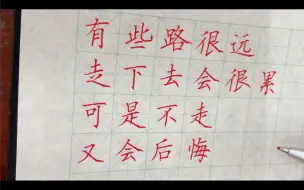 有些路很远
走下去会很累
可是不走
又会后悔